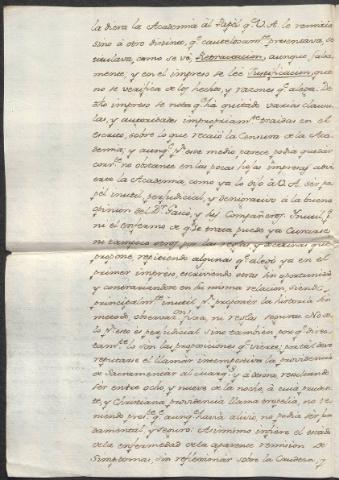 la diera la Academia al Papel q.e V. A. le remitia
sino à otro distinto, q.e cautelosam.te presentava, se
titulava, como se vé, Retractacion, aunque falsa-
mente, y en el impreso se lee Justificacion, que
no se verifica de los hechos, y razones q.e alega. De
dho impreso se nota q.e ha quitado varias clausu-
las, y autoridades impropriam.te traidas en el
escrito, sobre lo que recaiò la Censura de la Aca-
demia; y aunq.e p.r este medio, parece podia quedar
corr.te no obstante en las pocas hojas impresas advi-
erte la Academia, como ya lo dijo à V. A. ser pa-
pel inutil, perjudicial, y denigrativo à la buena
opinion del D.r y sus Compañeros. Inutil p.q.e
ni el enfermo de que trata puede ya Curarse
ni tampoco otros por las reglas y que
propone, repitiendo algunas q.e alegó ya en el
primer impreso, escriviendo otras sin oportunidad
y contrariandose en la misma relacion, siendo
principalm.te inutil p.r proponer la historia sin
metodo, observacion fixa, ni reglas seguras. No so-
lo p.r esto es perjudicial sino tambien por q.e direc-
tam.te lo son las proposiciones q.e vierte; por tal deve
reputarse el llamar intempestiva la providencia
de Sacramentar al y à demas resultando
ser entre ocho, y nueve de la noche, à cuia pruden-
te, y Christiana providencia llama tropelia, no te-
niendo pres.te q.e aunq.e havia alivio, no podia ser fun-
damental, y seguro. Assimismo infiere el estado
de la enfermedad de la aparente remision de
Simptomas, sin reflexionar sobre la Caudeza, y